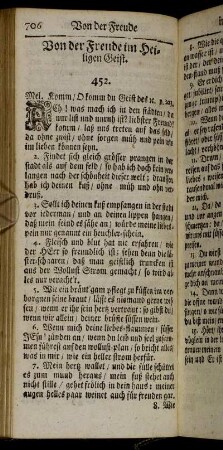 706 Von der Freude
Von der Freude im Hei-
ligen Geist.
452.
Mel. Komm / O komm du Geist des ꝛc. p. 203.
ACh! was mach ich in den städten / da
nur list und unruh ist? liebster Freund
komm / laß uns treten auf das feld /
da ohne zwist / ohne sorgen müh und pein wir
im lieben können seyn.
2. Findet sich gleich grösser prangen in der
stadt als auf dem feld / so hab ich doch kein ver-
langen nach der schönheit dieser welt; draussen
hab ich deinen kuß / ohne müh und ohn ver-
druß.
3. Solt ich deinen kuß empfangen in der stadt
vor jederman / und an deinen lippen hangen /
daß mein feind es sähe an / würde meine liebes-
pein nur genannt ein heuchler-schein.
4. Fleisch und blut hat nie erfahren / wie
der HErr so freundlich ist / sehen dann die
an der Wollust Strom gemacht / so wird al-
les nur veracht't.
5. Wie ein braut gam pflegt zu küssen im ver-
borgnen seine braut / läßt es niemand gerne wis-
sen / wenn er ihr sein hertz vertraut: so gibst du
wenn wir allein / deiner brüste süssen wein.
6. Wenn mich deine liebes-flammen / süsser
JEsu zünden an / wenn du leib und seel zusam-
men führest auf den wollust-plan / so bricht alles
was in mir / wie ein heller strom herfür.
7. Mein hertz wallet / und die fülle schüttet
es zum mund heraus / mein fuß stehet auch
nicht stille / gehet frölich in dein haus; meiner
augen helles paar weinet auch für freuden gar.
8. Wie